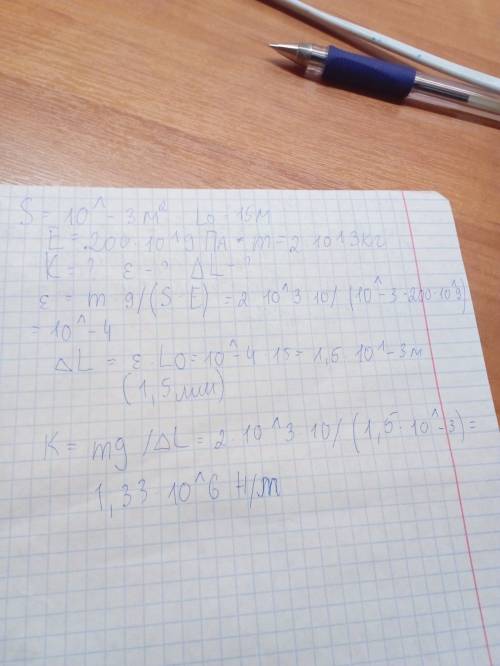 S = 10^-3 м² L0 = 15м
E = 200·10^9 ПА m = 2 10^3кг
K = ? ε = ? ΔL = ?
ε = m g/(S E) = 2 10^3 10/(10^-3·200·10^9)
= 10^-4
ΔL = ε L0 = 10^-4 15 = 1,5 10^-3м
(1,5мм)
K = mg/ΔL = 2·10^3 10/(1,5·10^-3) =
1,33 10^6 Н/m